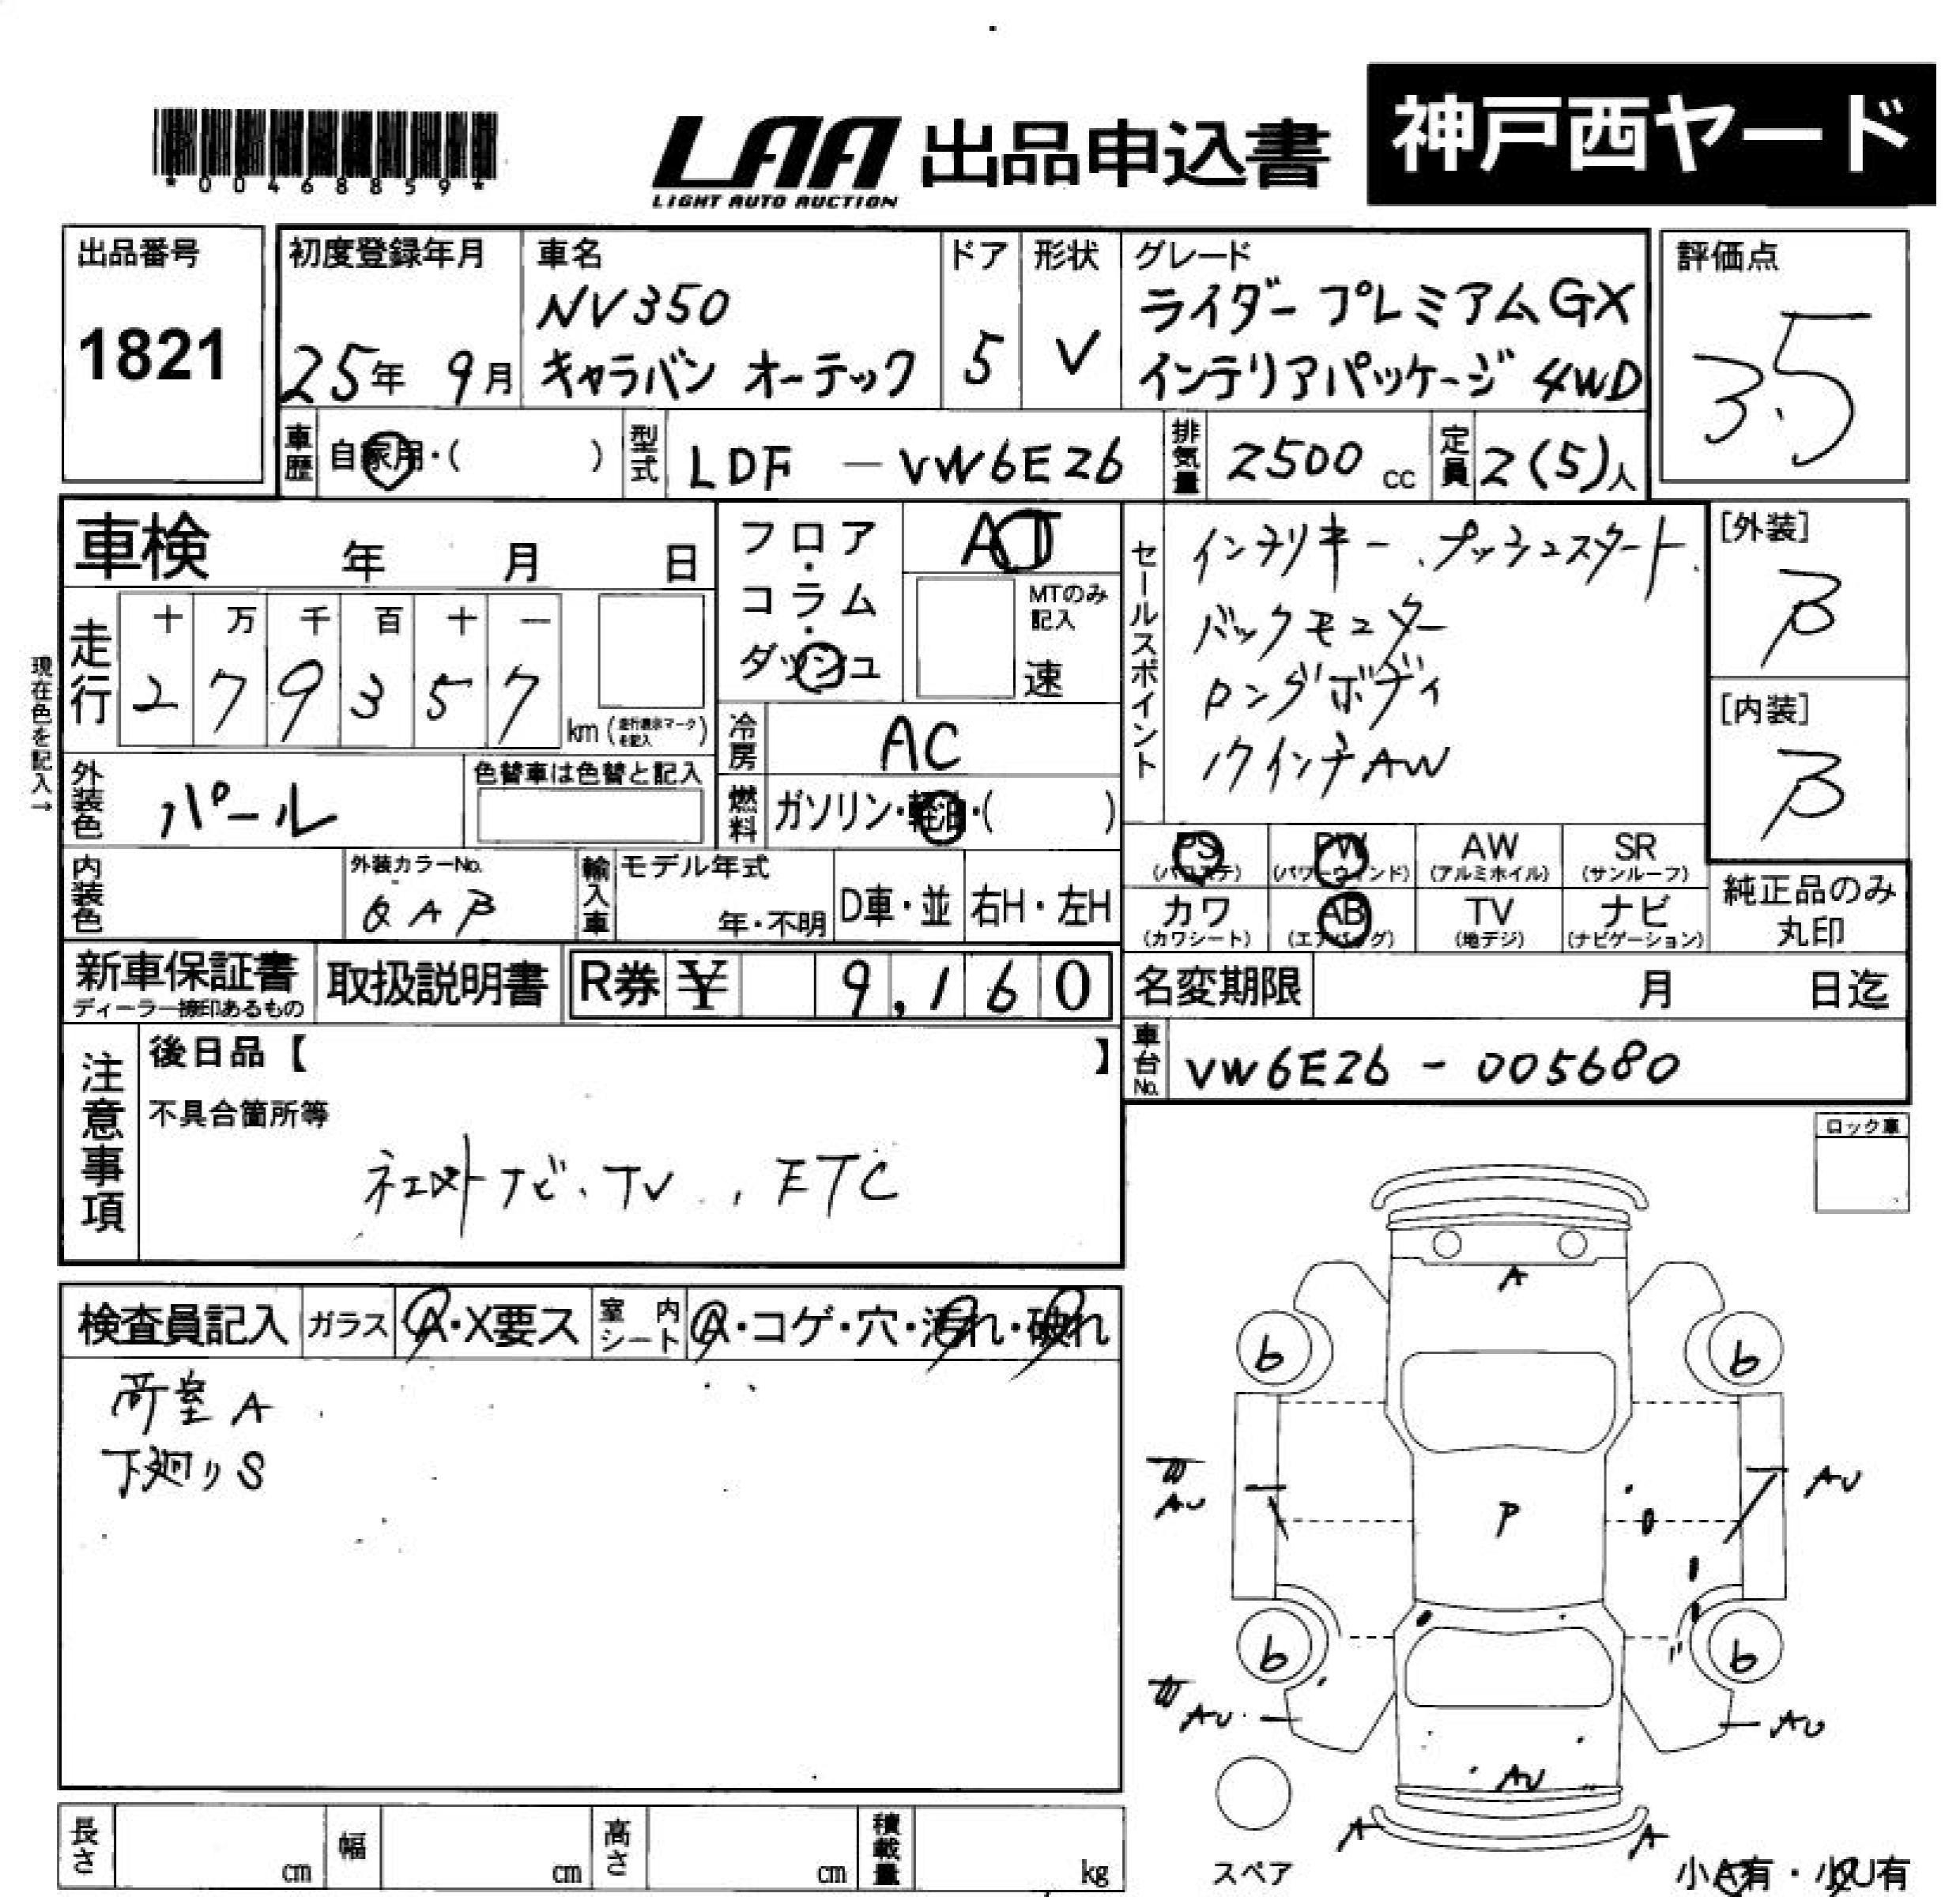 *00468859*
LAA 出品申込書 神戸西ヤード
LIGHT AUTO AUCTION
出品番号
1821
初度登録年月
25年 9月
車名
NV350
キャラバン オーテック
ドア
5
形状
V
グレード
ライダー プレミアムGX
インテリアパッケージ 4WD
評価点
3.5
車歴 自家用・( )
型式 LDF - VW6E26
排気量 2500 cc
定員 2(5)人
車検 年 月 日
フロア・コラム・ダッシュ
AT
MTのみ記入
速
現在色を記入→
走行
十 万 千 百 十 一
2 7 9 3 5 7
km (走行表示マークを記入)
冷房 AC
燃料 ガソリン・軽油・( )
セールスポイント
インテリキー、プッシュスタート、
バックモニター
ロングボディ
17インチAW
[外装]
B
[内装]
B
外装色 パール
色替車は色替と記入
内装色
外装カラーNo.
QAB
輸入車
モデル年式
年・不明
D車・並
右H・左H
PS (パワステ)
PW (パワーウインド)
AW (アルミホイル)
SR (サンルーフ)
カワ (カワシート)
AB (エアバッグ)
TV (地デジ)
ナビ (ナビゲーション)
純正品のみ
丸印
新車保証書
ディーラー捺印あるもの
取扱説明書
R券 ¥ 9,160
名変期限 月 日迄
車台No. VW6E26 - 005680
注意事項
後日品【 】
不具合箇所等
社外ナビ、TV、ETC
ロック車
検査員記入
ガラス A・X要ス
室内シート A・コゲ・穴・汚れ・破れ
荷室A
下廻りS
A
b b
AU
P
AU
b b
AU
AU
AU
A A
スペア
小A有・小U有
長さ cm
幅 cm
高さ cm
積載量 kg